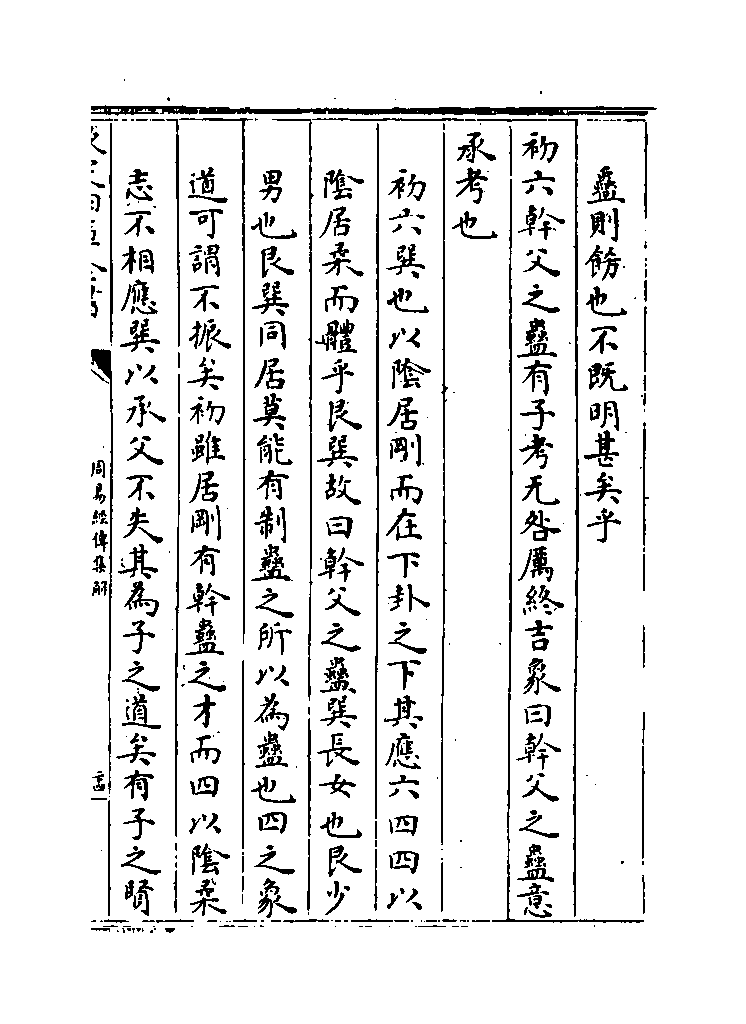 蠱則飭也不既明甚矣乎
初六幹父之蠱有子考无咎厲終吉象曰幹父之蠱意
承考也
初六巽也以陰居剛而在下卦之下其應六四四以
陰居柔而體乎艮巽故曰幹父之蠱巽長女也艮少
男也艮巽同居莫能有制蠱之所以為蠱也四之象
道可謂不振矣初雖居剛有幹蠱之才而四以陰柔
志不相應巽以承父不失其為子之道矣有子之賢
周易經傳集解